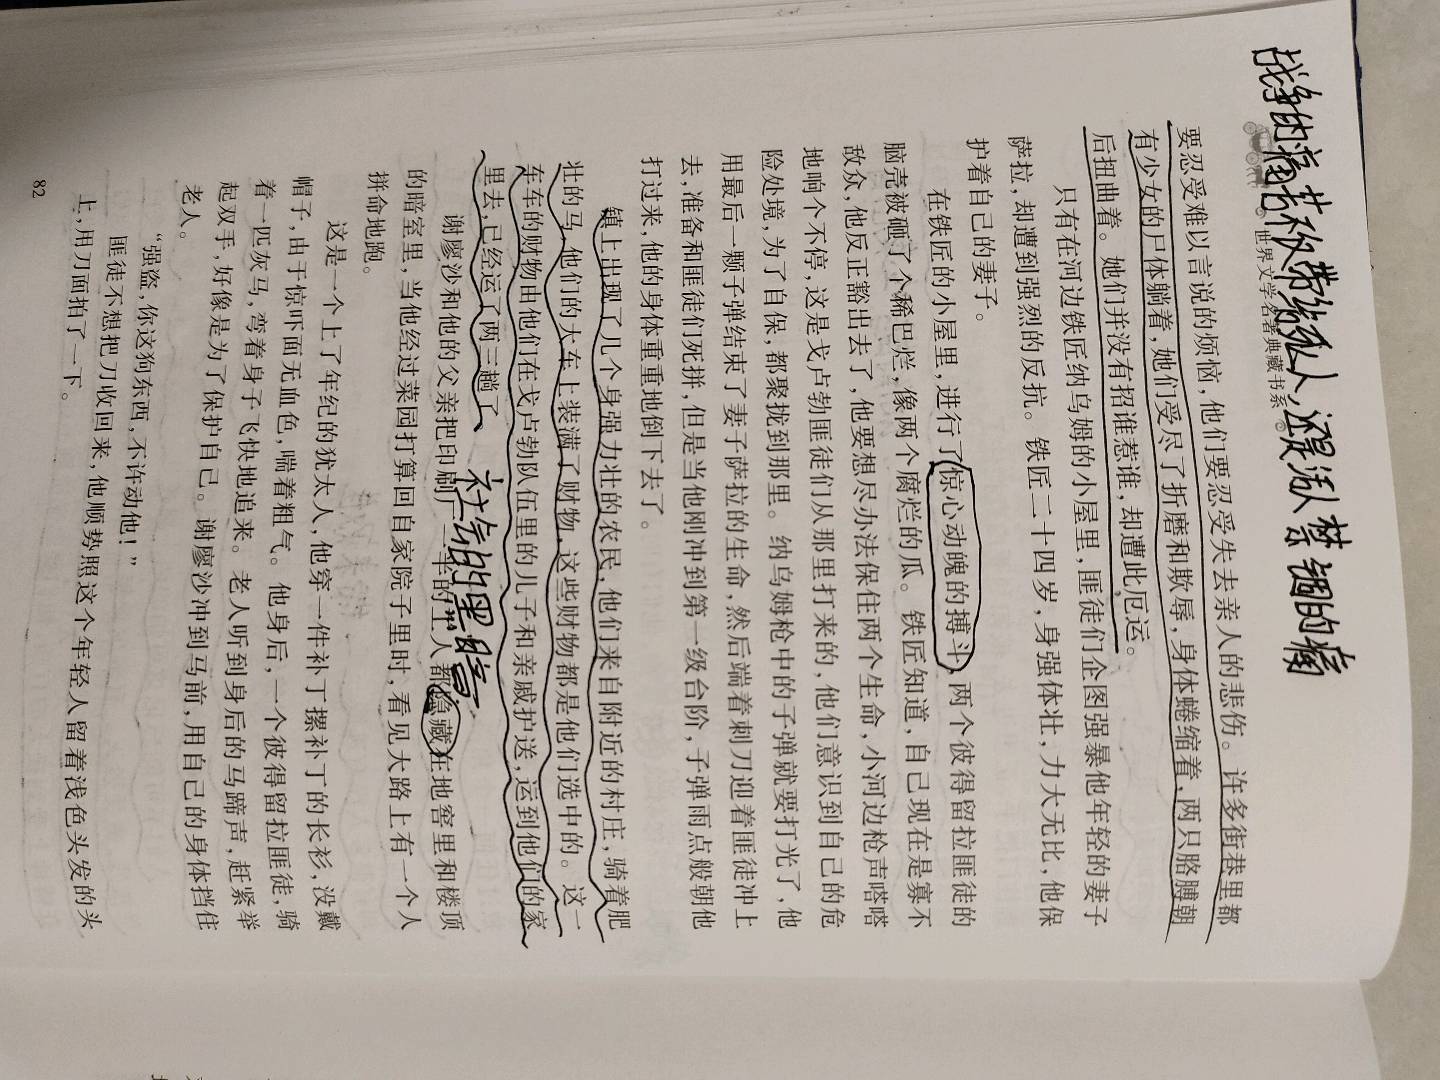 战争的痛苦不仅带给死人,还是活人禁锢的痛
世界文学名著典藏书系
要忍受难以言说的烦恼,他们要忍受失去亲人的悲伤。许多街巷里都
有少女的尸体躺着,她们受尽了折磨和欺辱,身体蜷缩着,两只胳膊朝
后扭曲着。她们并没有招谁惹谁,却遭此厄运。
只有在河边铁匠纳乌姆的小屋里,匪徒们企图强暴他年轻的妻子
萨拉,却遭到强烈的反抗。铁匠二十四岁,身强体壮,力大无比,他保
护着自己的妻子。
在铁匠的小屋里,进行了惊心动魄的搏斗,两个彼得留拉匪徒的
脑壳被砸了个稀巴烂,像两个腐烂的瓜。铁匠知道,自己现在是寡不
敌众,他反正豁出去了,他要想尽办法保住两个生命,小河边枪声嗒嗒
地响个不停,这是戈卢勃匪徒们从那里打来的,他们意识到自己的危
险处境,为了自保,都聚拢到那里。纳乌姆枪中的子弹就要打光了,他
用最后一颗子弹结束了妻子萨拉的生命,然后端着刺刀迎着匪徒冲上
去,准备和匪徒们死拼,但是当他刚冲到第一级台阶,子弹雨点般朝他
打过来,他的身体重重地倒下去了。
镇上出现了几个身强力壮的农民,他们来自附近的村庄,骑着肥
壮的马,他们的大车上装满了财物,这些财物都是他们选中的。这一
车车的财物由他们在戈卢勃队伍里的儿子和亲戚护送,运到他们的家
里去,已经运了两三趟了。
社会的黑暗
谢廖沙和他的父亲把印刷厂一半的工人都隐藏在地窖里和楼顶
的暗室里,当他经过菜园打算回自家院子里时,看见大路上有一个人
拼命地跑。
这是一个上了年纪的犹太人,他穿一件补丁摞补丁的长衫,没戴
帽子,由于惊吓面无血色,喘着粗气。他身后,一个彼得留拉匪徒,骑
着一匹灰马,弯着身子飞快地追来。老人听到身后的马蹄声,赶紧举
起双手,好像是为了保护自己。谢廖沙冲到马前,用自己的身体挡住
老人。
“强盗,你这狗东西,不许动他!”
匪徒不想把刀收回来,他顺势照这个年轻人留着浅色头发的头
上,用刀面拍了一下。
82